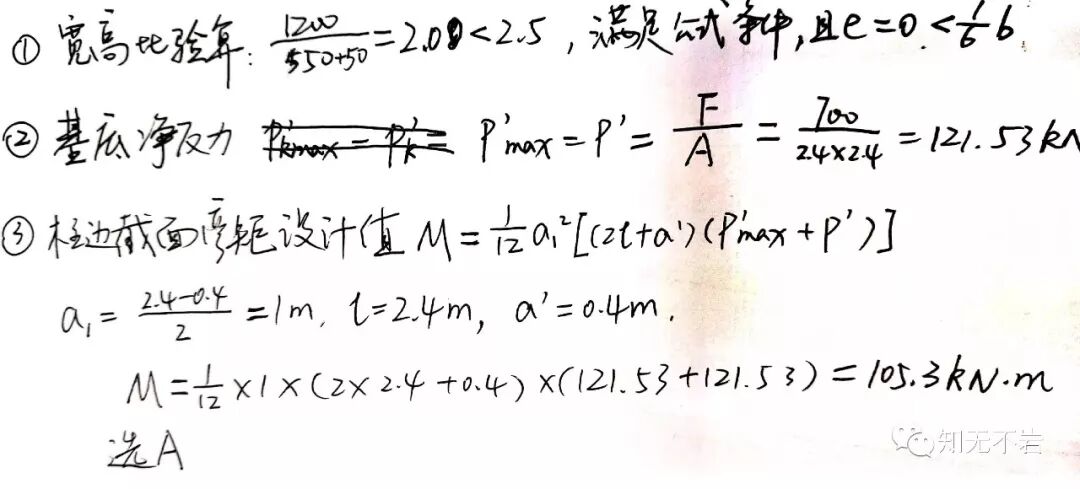 ① 宽高比验算: 1200/(550+50) = 2.0 < 2.5, 满足公式条件, 且e=0.<1/6 b.
② 基底净反力 P'kmax = P'k = P'max = P' = F/A = 700/(2.4×2.4) = 121.53 kN
③ 柱边截面弯矩设计值 M = 1/12 a₁²[(2l+a')(P'max+P')]
a₁ = (2.4-0.4)/2 = 1m, l=2.4m, a'=0.4m.
M = 1/12 ×1×(2×2.4+0.4)×(121.53+121.53) = 105.3kN·m
选A
知无不岩